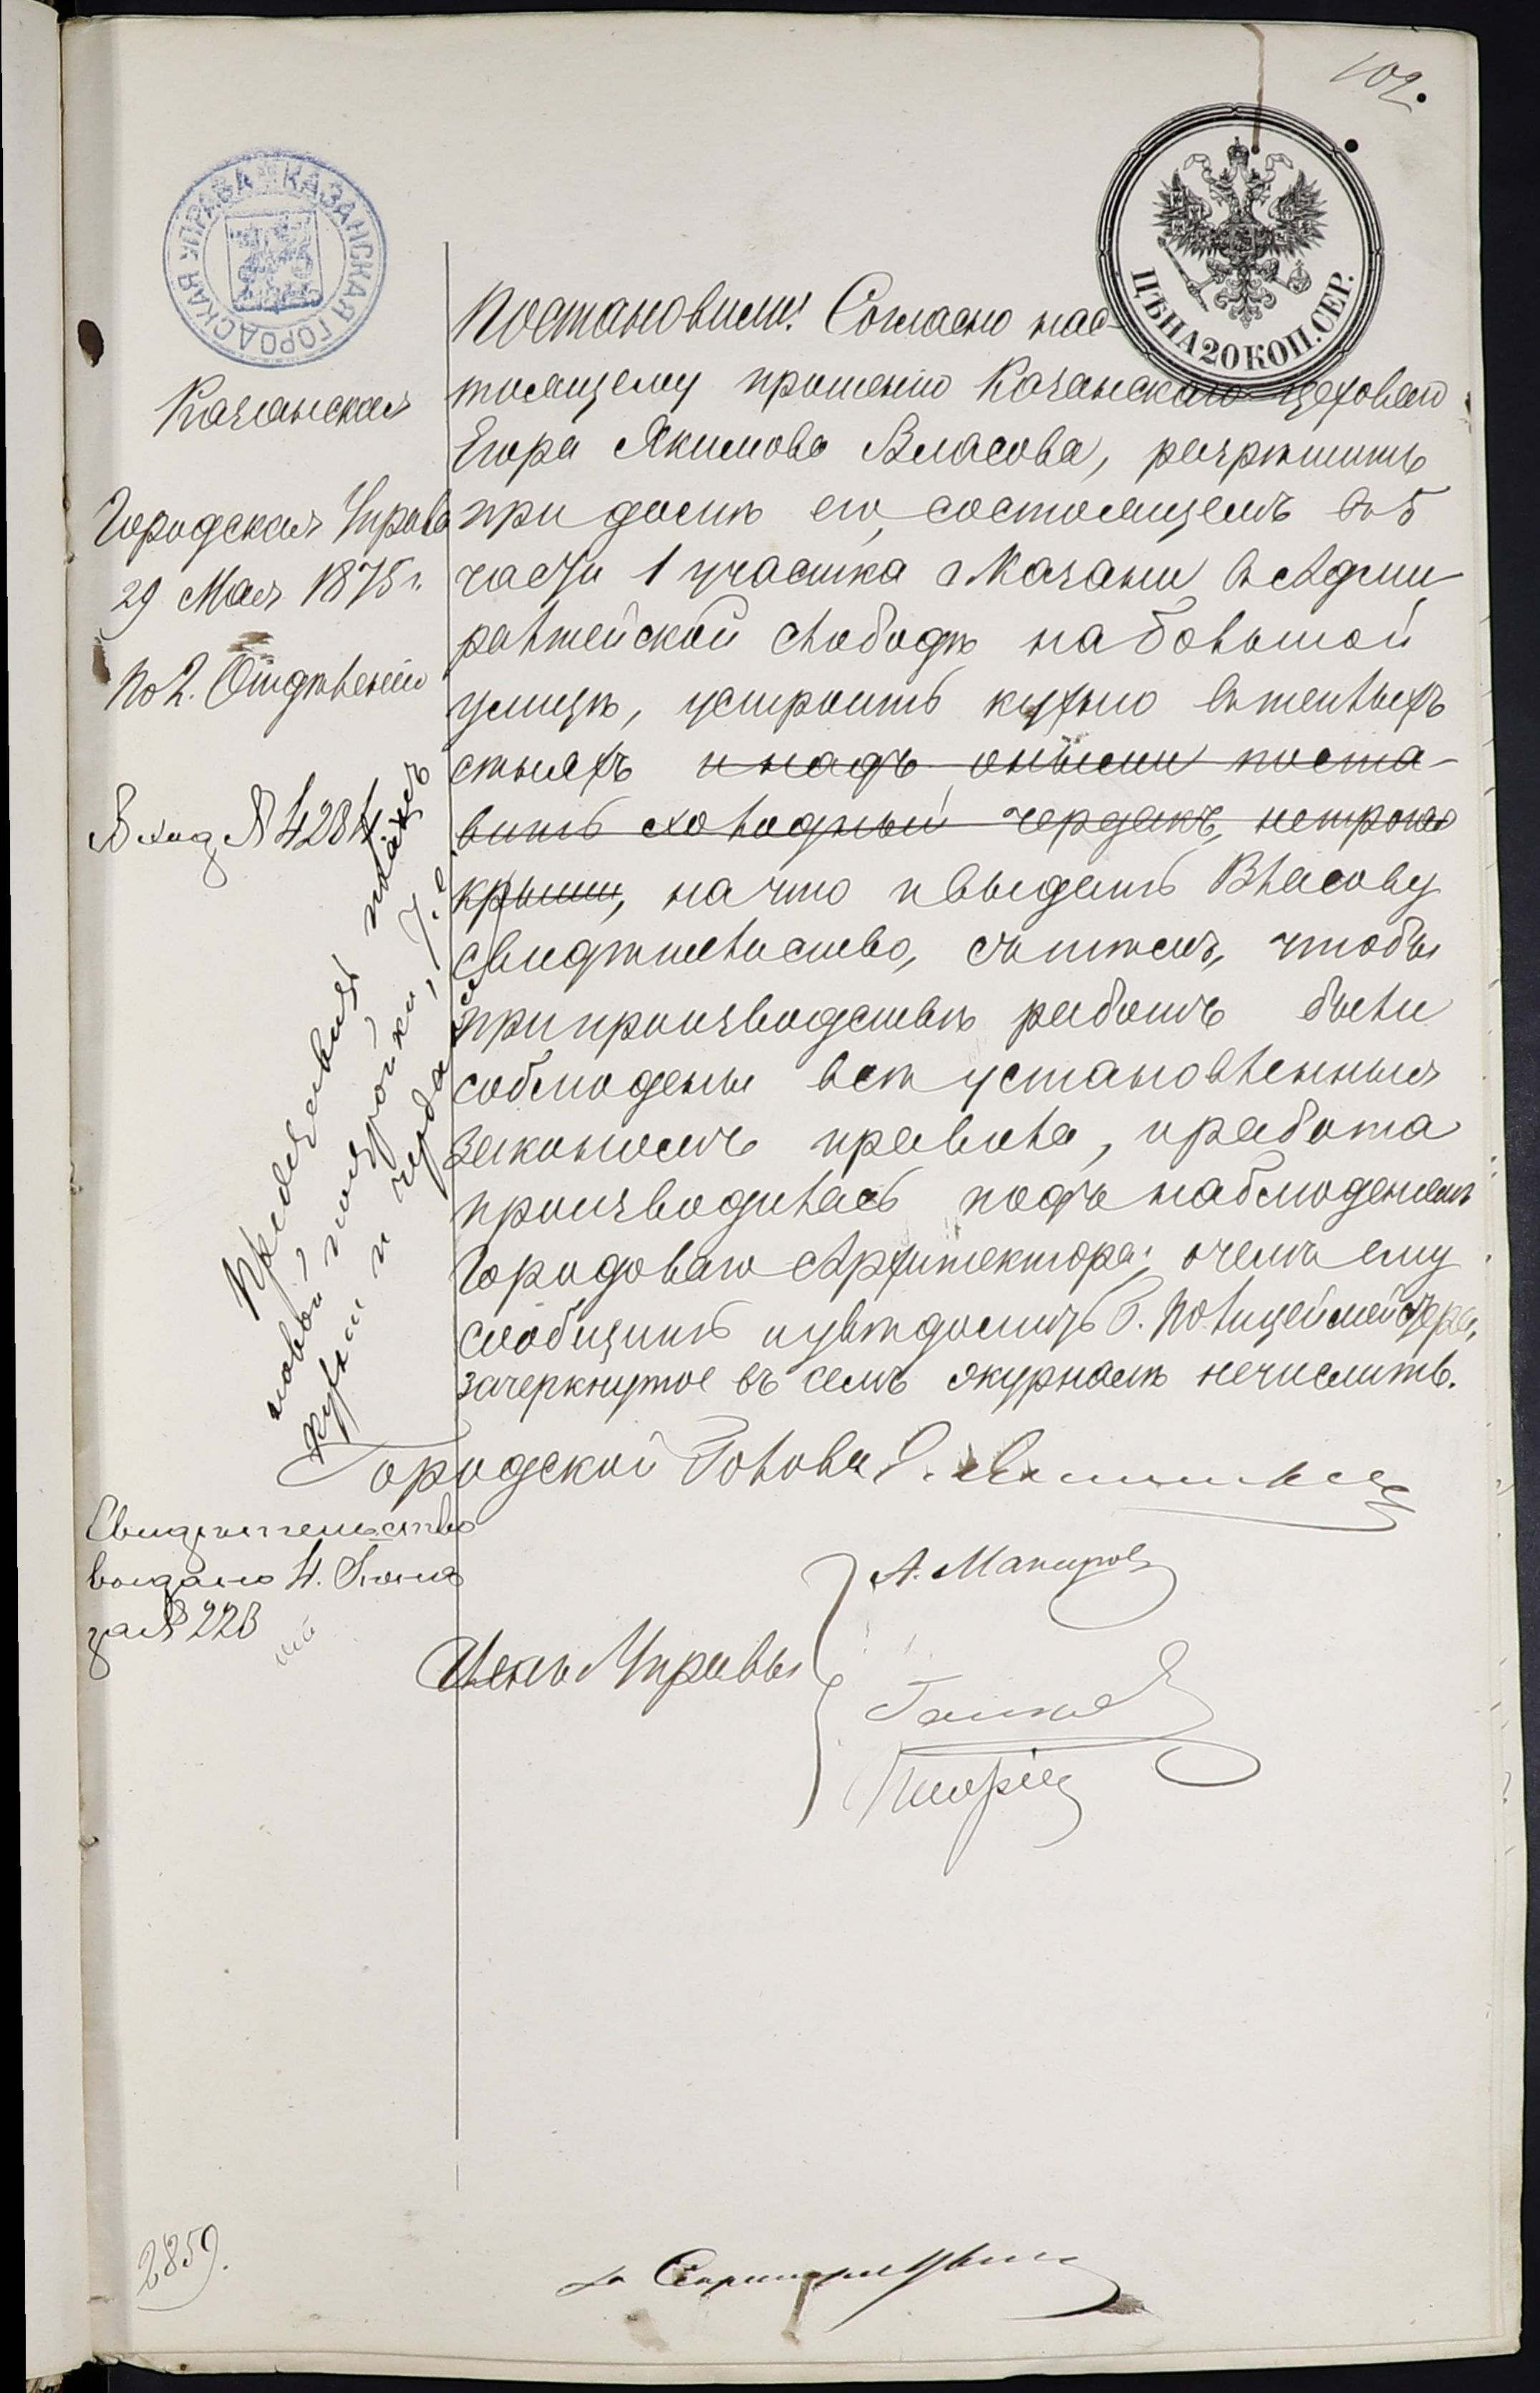 102.
КАЗАНСКАЯ ГОРОДСКАЯ УПРАВА
ЦѢНА 20 КОП. СЕР.
Казанская
Городская Управа
29 Мая 1875 г.
по 2. Отдѣленію
Вход № 4284
Постановили: Согласно нас-
тоящему прошенію Казанскаго цеховаго
Егора Якимова Власова, разрѣшить
при домѣ его, состоящемъ въ 5
части 1 участка г Казани въ Адми
ралтейской слободѣ на Большой
улицѣ, устроить кухню въ теплыхъ
стѣнахъ и надъ оными поста-
вить холодный чердакъ, нетрогая
крыши, на что и выдать Власову
свидѣтельство, съ тѣмъ, чтобы
при производствѣ работъ были
соблюдены всѣ установленныя
закономъ правила, и работа
производилась подъ наблюденіемъ
Городоваго Архитектора; о чемъ ему
сообщить и увѣдомить Г. Полицеймейстера,
зачеркнутое въ семъ журналѣ нечислить.
новой постройки
кухни и чердака
Городской Голова
Свидѣтельство
выдано 4. Іюня
за № 223
Члены Управы
2859.
Секретарь